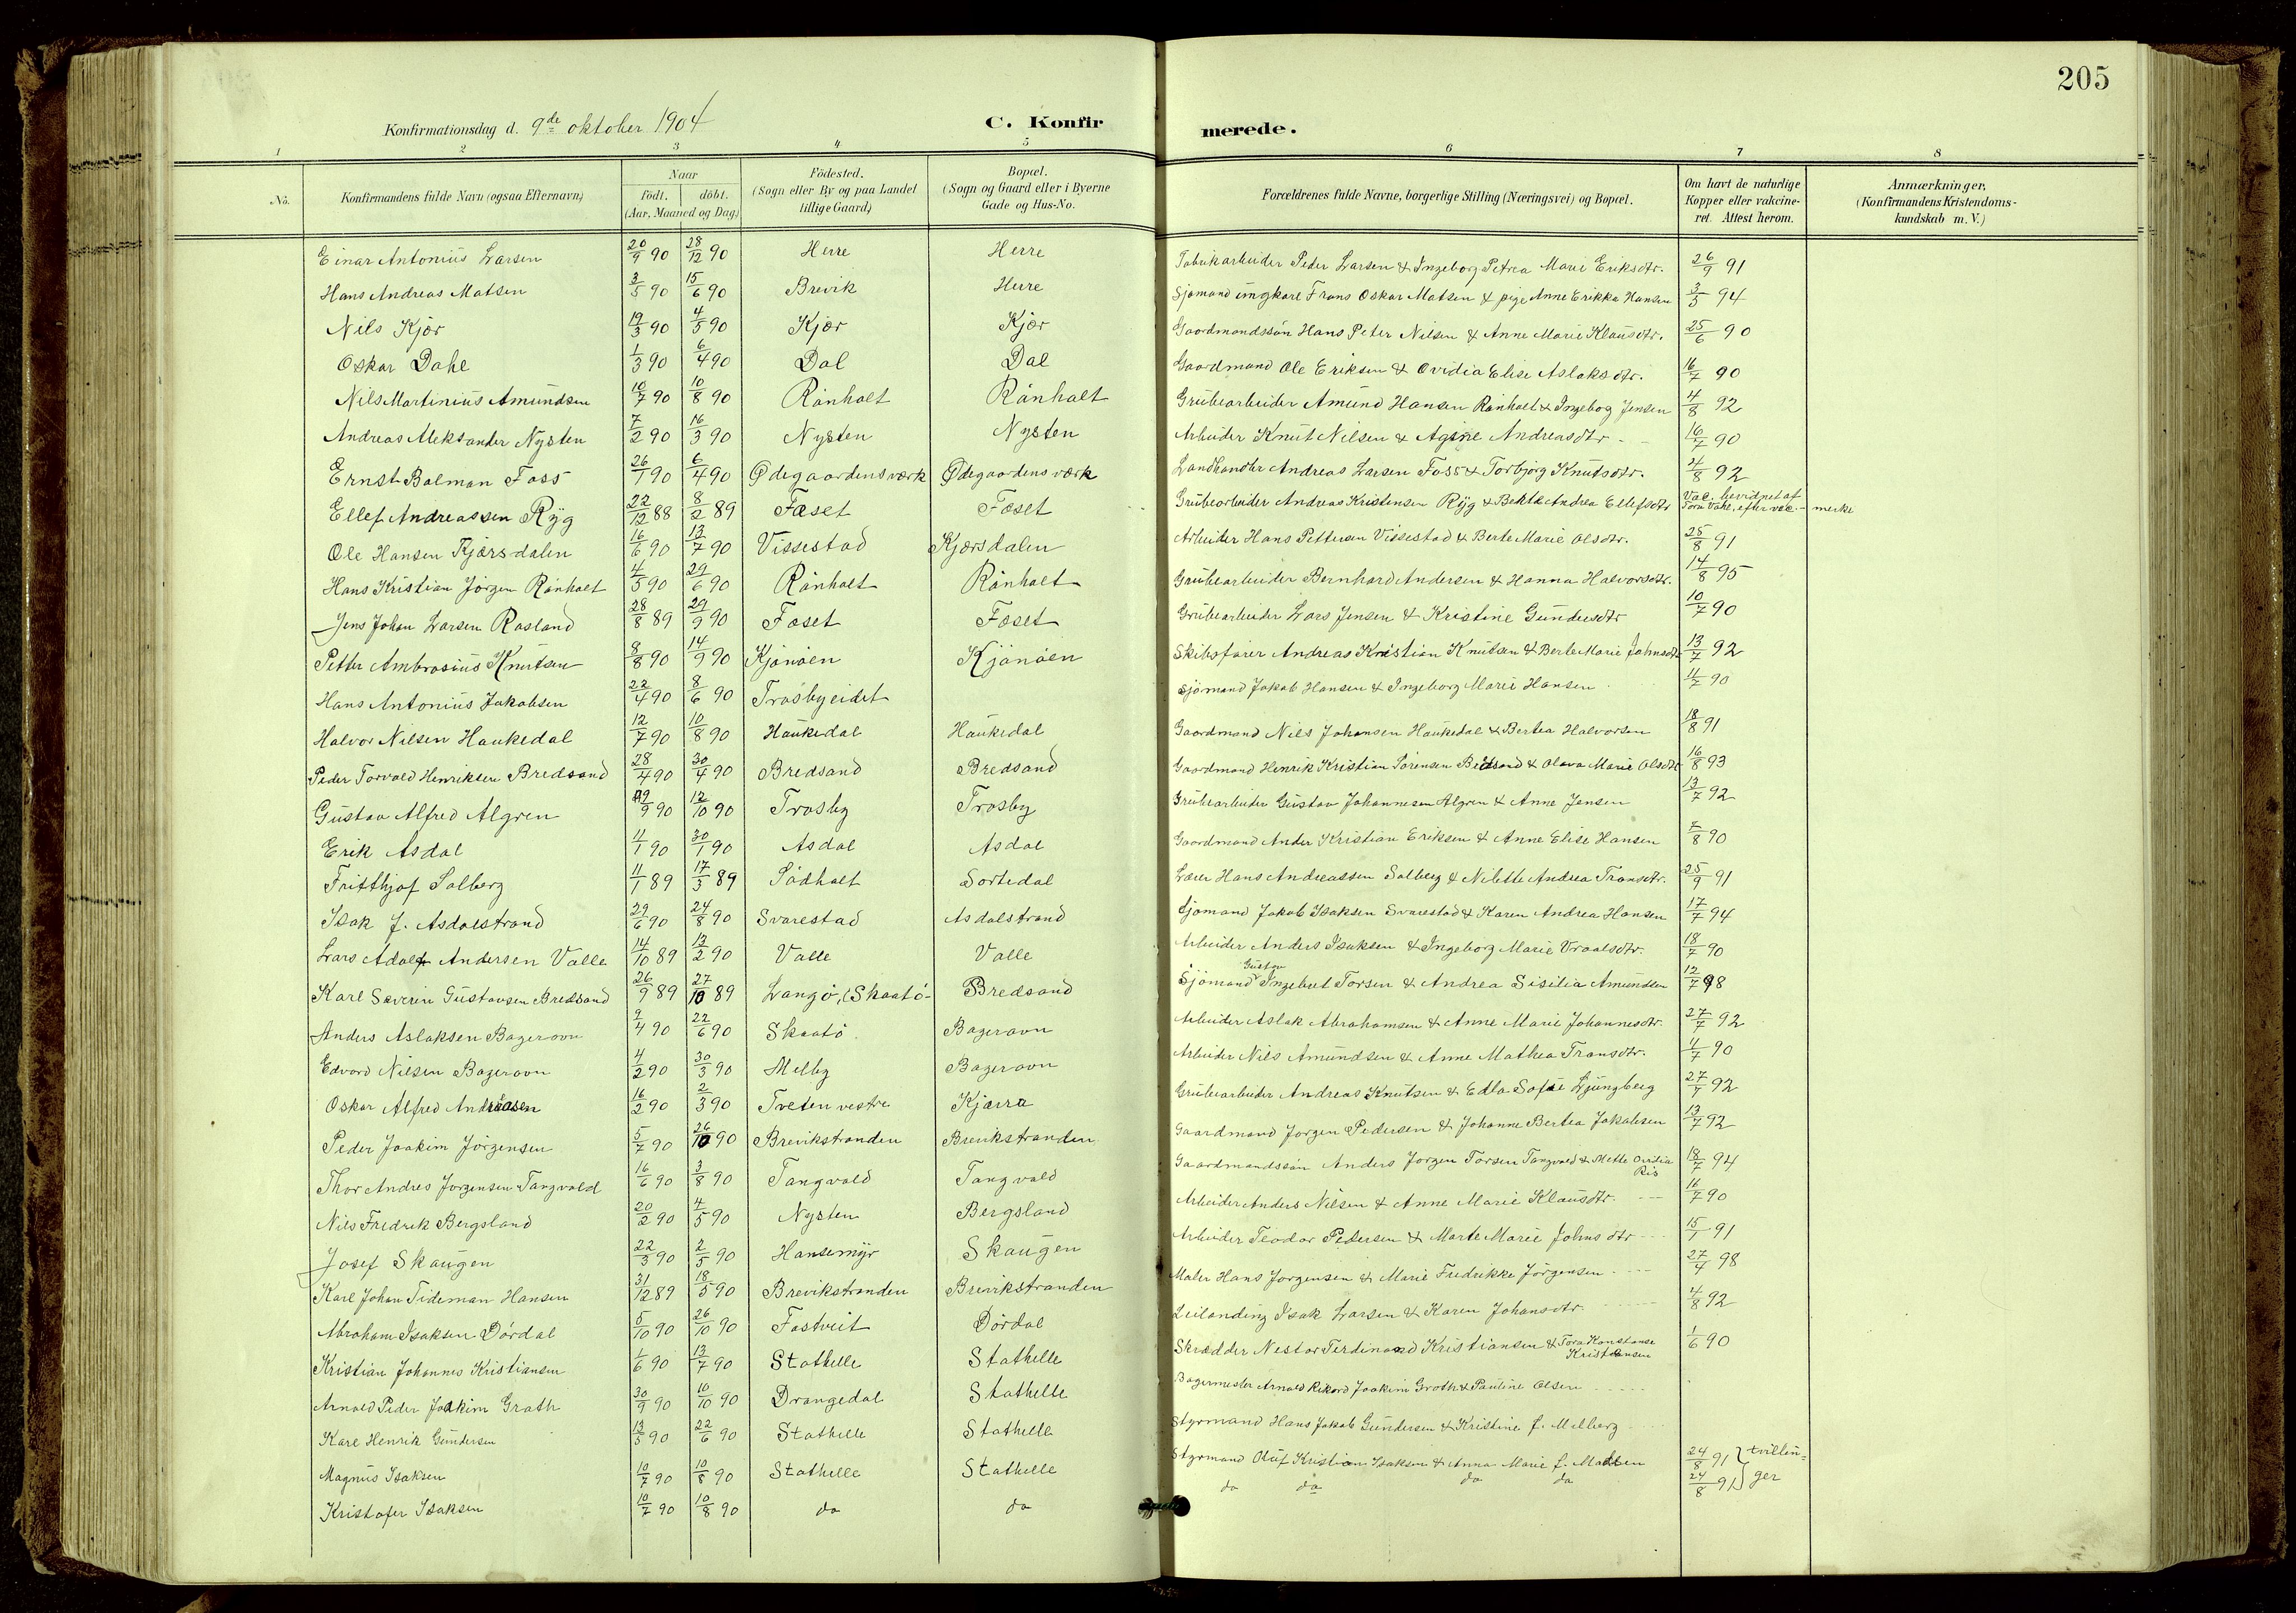 205
Konfirmationsdag d. 9de oktober 1904 C. Konfirmerede.
1 2 3 4 5 6 7 8
No. Konfirmandens fulde Navn (ogsaa Efternavn) Naar födt. döbt. (Aar, Maaned og Dag) Födested. (Sogn eller By og paa Landet tillige Gaard) Bopæl. (Sogn og Gaard eller i Byerne Gade og Hus-No. Forældrenes fulde Navne, borgerlige Stilling (Næringsvei) og Bopæl. Om havt de naturlige Kopper eller vakcineret. Attest herom. Anmærkninger, (Konfirmandens Kristendomskundskab m. V.)
Einar Antonius Larsen 20/9 90 28/12 90 Herre Herre Fabrikarbeider Peder Larsen & Ingeborg Petrea Marie Eriksdtr. 26/9 91
Hans Andreas Matsen 3/5 90 15/6 90 Brevik Herre Sjømand ungkarl Frans Oskar Matsen & pige Anne Erikka Hansen 3/5 94
Nils Kjær 19/3 90 4/5 90 Kjær Kjær Gaardmandssön Hans Peter Nilsen & Anne Marie Klausdtr. 25/6 90
Oskar Dahl 1/3 90 6/4 90 Dal Dal Gaardmand Ole Eriksen & Ovidia Elise Aslaksdtr. 16/7 90
Nils Martinius Amundsen 10/7 90 10/8 90 Rönholt Rönholt Grubearbeider Amund Hansen Rönholt & Ingebog Jensen 4/8 92
Andreas Aleksander Nysten 7/2 90 16/3 90 Nysten Nysten Arbeider Knut Nilsen & Agine Andreasdtr - 16/7 90
Ernst Balman Foss 26/1 90 6/4 90 Ødegaardensværk Ødegaardensværk Landhandler Andreas Larsen Foss & Torbjørg Knutsdtr. 4/8 92
Ellef Andreassen Ryg 22/12 88 8/2 89 Fæset Fæset Grubearbeider Andreas Kristensen Ryg & Andrea Ellefsdtr Vac. bevidnet af Tora Vahl. efter vac. - merke
Ole Hansen Kjærsdalen 16/6 90 13/7 90 Vissestad Kjærsdalen Arbeider Hans Pettersen Vissestad & Berte Marie Olsdtr. 25/8 91
Hans Kristian Jörgen Rönholt 4/5 90 29/6 90 Rönholt Rönholt Grubearbeider Bernhard Andersen & Hanna Halvorsdtr. 14/8 95
Jens Johan Larsen Rosland 28/8 89 29/9 90 Fæset Fæset Grubearbeider Lars Jensen & Kristine Gundersdtr 10/7 90
Petter Ambrosius Knutsen 8/8 90 14/9 90 Kjönöen Kjönöen Skibsfører Andreas Kristian Knutsen & Berte Marie Johnsdtr 13/7 92
Hans Antonius Jakobsen 22/4 90 8/6 90 Trosbyeidet Sjömand Jakob Hansen & Ingeborg Marie Hansen 11/7 90
Halvor Nilsen Haukedal 12/7 90 10/8 90 Haukedal Haukedal Gaardmand Nils Johansen Haukedal & Bertea Halvorsen 18/8 91
Peder Torvald Henriksen Bredsand 28/4 90 30/4 90 Bredsand Bredsand Gaardmand Henrik Kristian Sörensen Bredsand & Olava Marie Olsdtr 16/8 93
Gustav Alfred Algren 9 90 12/10 90 Trosby Trosby Grubearbeider Gustav Johannesen Algren & Anne Jensen 13/7 92
Erik Asdal 11/1 90 30/1 90 Asdal Asdal Gaardmand Ander Kristian Eriksen & Anne Elise Hansen 7/8 90
Fritthjof Solberg 11/1 89 17/3 89 Södholt Sortedal Lærer Hans Andreassen Solberg & Nilette Andrea Fransdtr. 25/9 91
Isak J. Asdalstrand 29/6 90 24/8 90 Svarestad Asdalstrand Sjømand Jakob Isaksen Svarestad & Karen Andrea Hansen 17/7 94
Lars Adolf Andersen Valle 14/10 89 13/2 90 Valle Valle Arbeider Anders Isaksen & Ingeborg Marie Vraalsdtr. 18/7 90
Karl Severin Gustavsen Bredsand 26/9 89 27/10 89 Langö, (Skaatö- Bredsand Sjömand Gustav Ingebret Torsen & Andrea Sisilia Amundsen 12/7 98
Anders Aslaksen Bagerovn 9/4 90 22/6 90 Skaatö Bagerovn Arbeider Aslak Abrahamsen & Anne Marie Johannesdtr. 27/7 92
Edvard Nilsen Bagerovn 4/2 90 30/3 90 Melby Bagerovn Arbeider Nils Amundsen & Anne Mathea Fransdtr. 11/7 90
Oskar Alfred Andreasen 16/2 90 2/3 90 Tveten vestre Kjærra Grubearbeider Andreas Knutsen & Edla Sofie Ljungberg 27/7 92
Peder Joakim Jörgensen 5/7 90 26/10 90 Brevikstranden Brevikstranden Gaardmand Jorgen Pedersen & Johanne Bertea Jakobsen 13/7 92
Thor Andres Jorgensen Tangvald 16/6 90 3/8 90 Tangvald Tangvald Gaardmandssön Anders Jorgen Torsen Tangvald & Mette Ovidia Ris 18/7 94
Nils Fredrik Bergsland 20/2 90 4/5 90 Nysten Bergsland Arbeider Anders Nilsen & Anne Marie Klausdtr. 16/7 90
Josef Skaugen 22/3 90 2/5 90 Hansemyr Skaugen Arbeider Teodor Pedersen & Marte Marie Johnsdtr 15/1 91
Karl Johan Tideman Hansen 31/12 89 18/5 90 Brevikstranden Brevikstranden Maler Hans Jorgensen & Marie Fredrikke Jörgensen 27/4 98
Abraham Isaksen Dördal 5/10 90 26/10 90 Fostveit Dördal Leilending Isak Larsen & Karen Johansdtr. 4/8 92
Kristian Johannes Kristiansen 1/6 90 13/7 90 Stathelle Stathelle Skrædder Nestor Ferdinand Kristiansen & Tora Konstanse Kristensen 1/6 90
Arnold Peder Joakim Groth 30/9 90 10/10 90 Drangedal Stathelle Bagermester Arnold Rikard Joakim Groth & Pauline Olsen
Karl Henrik Gundersen 13/5 90 22/6 90 Stathelle Stathelle Styrmand Hans Jakob Gundersen & Kristine f. Melberg
Magnus Isaksen 10/7 90 10/8 90 Stathelle Stathelle Styrmand Oluf Kristian Isaksen & Anna Marie f. Madsen 24/8 91 tvillin=
Kristofer Isaksen 10/7 90 10/8 90 do do do do do do 24/8 91 ger